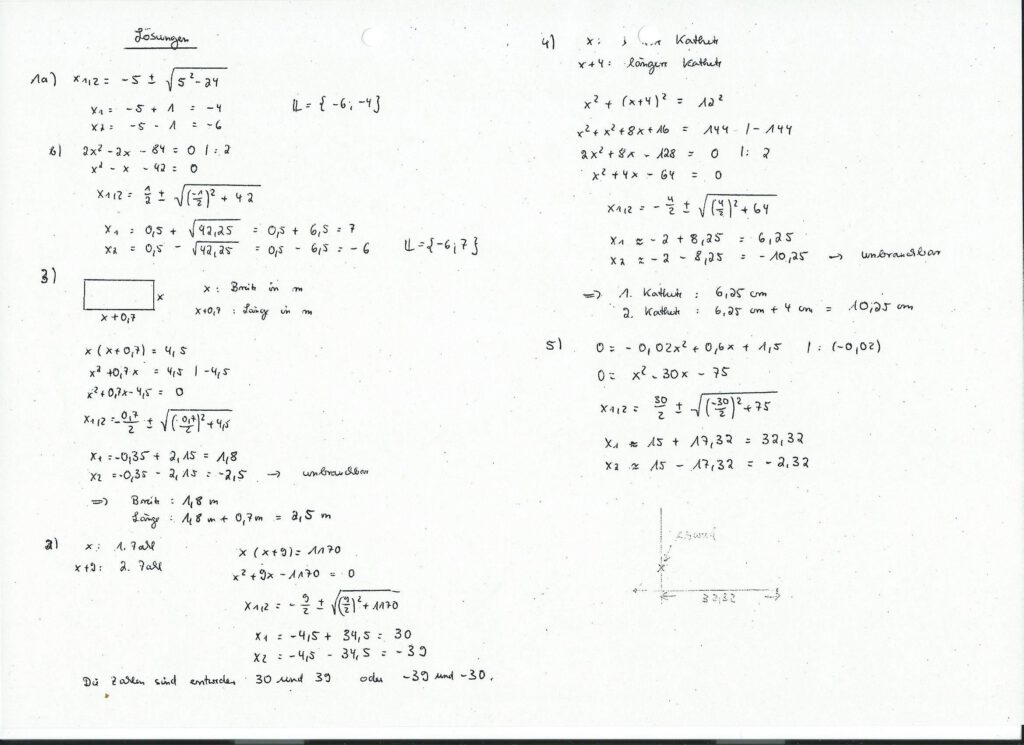 Lösungen
1a) x1,2 = -5 ± √(5² - 24)
x1 = -5 + 1 = -4
x2 = -5 - 1 = -6
𝕃 = { -6 ; -4 }
b) 2x² - 2x - 84 = 0 | : 2
x² - x - 42 = 0
x1,2 = 1/2 ± √((-1/2)² + 42)
x1 = 0,5 + √42,25 = 0,5 + 6,5 = 7
x2 = 0,5 - √42,25 = 0,5 - 6,5 = -6
𝕃 = { -6 ; 7 }
3)
x
x+0,7
x : Breite in m
x+0,7 : Länge in m
x (x+0,7) = 4,5
x² + 0,7x = 4,5 | -4,5
x² + 0,7x - 4,5 = 0
x1,2 = -0,7/2 ± √((0,7/2)² + 4,5)
x1 = -0,35 + 2,15 = 1,8
x2 = -0,35 - 2,15 = -2,5 → unbrauchbar
⇒ Breite : 1,8 m
Länge : 1,8 m + 0,7 m = 2,5 m
2) x : 1. Zahl
x+9 : 2. Zahl
x (x+9) = 1170
x² + 9x - 1170 = 0
x1,2 = -9/2 ± √((9/2)² + 1170)
x1 = -4,5 + 34,5 = 30
x2 = -4,5 - 34,5 = -39
Die Zahlen sind entweder 30 und 39 oder -39 und -30.
4) x : Kathete
x+4 : längere Kathete
x² + (x+4)² = 12²
x² + x² + 8x + 16 = 144 | -144
2x² + 8x - 128 = 0 | : 2
x² + 4x - 64 = 0
x1,2 = -4/2 ± √((4/2)² + 64)
x1 ≈ -2 + 8,25 = 6,25
x2 ≈ -2 - 8,25 = -10,25 → unbrauchbar
⇒ 1. Kathete : 6,25 cm
2. Kathete : 6,25 cm + 4 cm = 10,25 cm
5) 0 = -0,02x² + 0,6x + 1,5 | : (-0,02)
0 = x² - 30x - 75
x1,2 = 30/2 ± √((-30/2)² + 75)
x1 ≈ 15 + 17,32 = 32,32
x2 ≈ 15 - 17,32 = -2,32
x
32,32